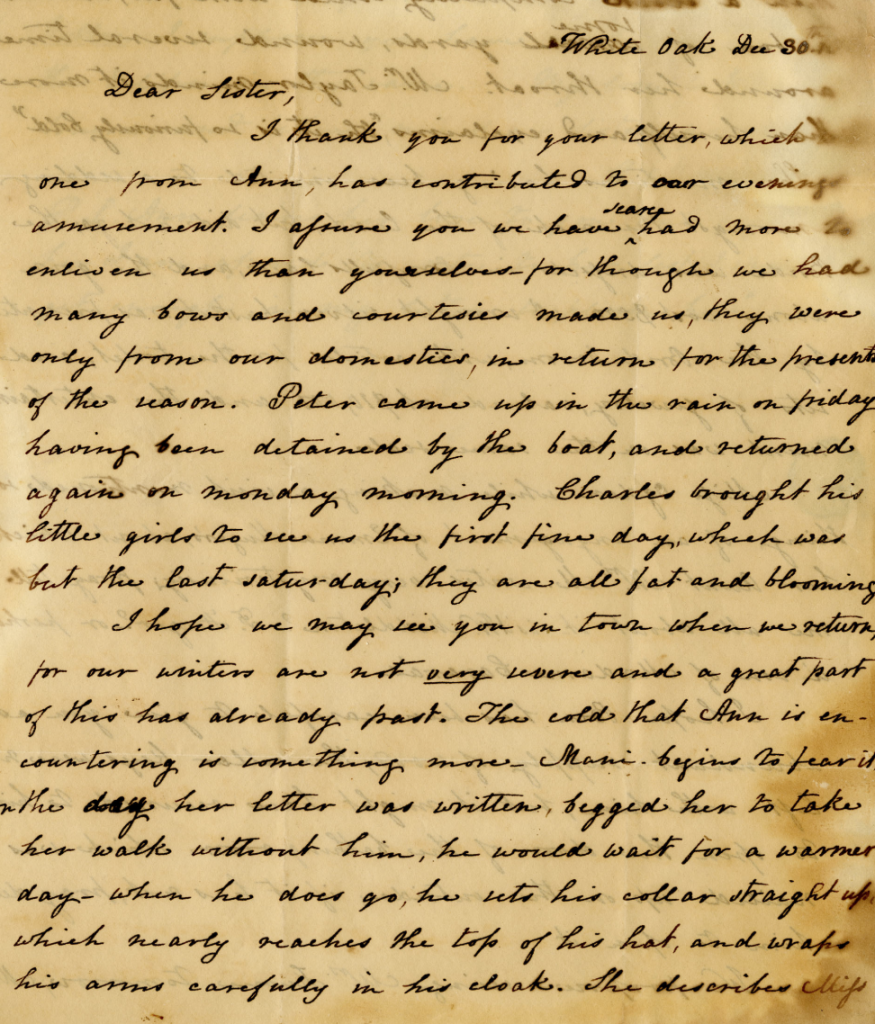 White Oak Dec 30
Dear Sister,
I thank you for your letter, which
one from Ann, has contributed to our evenings
amusement. I assure you we have scarce had more to
enliven us than yourselves - for though we had
many bows and courtesies made us, they were
only from our domestics, in return for the presents
of the season. Peter came up in the rain on friday
having been detained by the boat, and returned
again on monday morning. Charles brought his
little girls to see us the first fine day, which was
but the last saturday; they are all fat and blooming
I hope we may see you in town when we return,
for our winters are not very severe and a great part
of this has already past. The cold that Ann is en-
countering is something more - Mani. begins to fear it
the day her letter was written, begged her to take
her walk without him, he would wait for a warmer
day - when he does go, he sets his collar straight up,
which nearly reaches the top of his hat, and wraps
his arms carefully in his cloak. She describes Miss